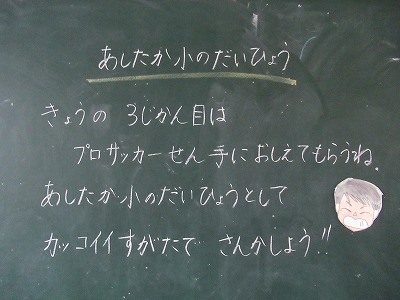 あしたか小のだいひょう
きょうの 3じかん目は
プロサッカーせん手におしえてもらうね。
あしたか小のだいひょうとして
カッコイイすがたで さんかしよう!!